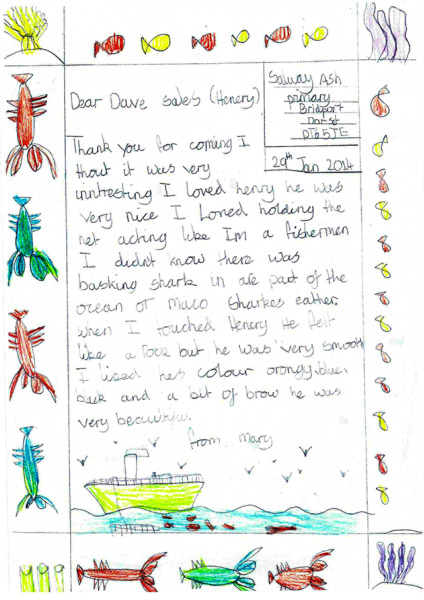 Salway Ash
primary
Bridport
Dorset
DT6 5JE
29th Jan 2014
Dear Dave Sales (Henery)
Thank you for coming I
thout it was very
inntresting I loved henry he was
very nice I Loned holding the
net acting like Im a fishermen
I didn't know there was
basking shark in are part of the
ocean or Maco Sharkes eather.
when I touched Henery He felt
like a rock but he was very smooth
I liked has colour orongy,blue,
black and a bit of brow he was
very beautiful.
from Mary